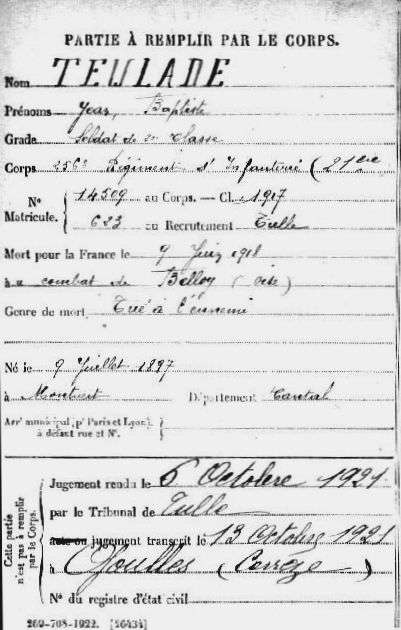 PARTIE À REMPLIR PAR LE CORPS.
Nom TEULADE
Prénoms Jean, Baptiste
Grade Soldat de 2e classe
Corps 256e Régiment d'Infanterie (21e
N° 14509 au Corps. — Cl. 1917
Matricule. 623 au Recrutement Tulle
Mort pour la France le 9 Juin 1918
à au combat de Belloy (Oise)
Genre de mort Tué à l'ennemi
Né le 9 Juillet 1897
à Montvert Département Cantal
Arr' municipal (p' Paris et Lyon),
à défaut rue et N°.
Cette partie
n'est pas à remplir
par le Corps.
Jugement rendu le 6 Octobre 1921
par le Tribunal de Tulle
acte ou jugement transcrit le 13 Octobre 1921
à Goulles (Corrèze)
N° du registre d'état civil
269-708-1922. [26434]